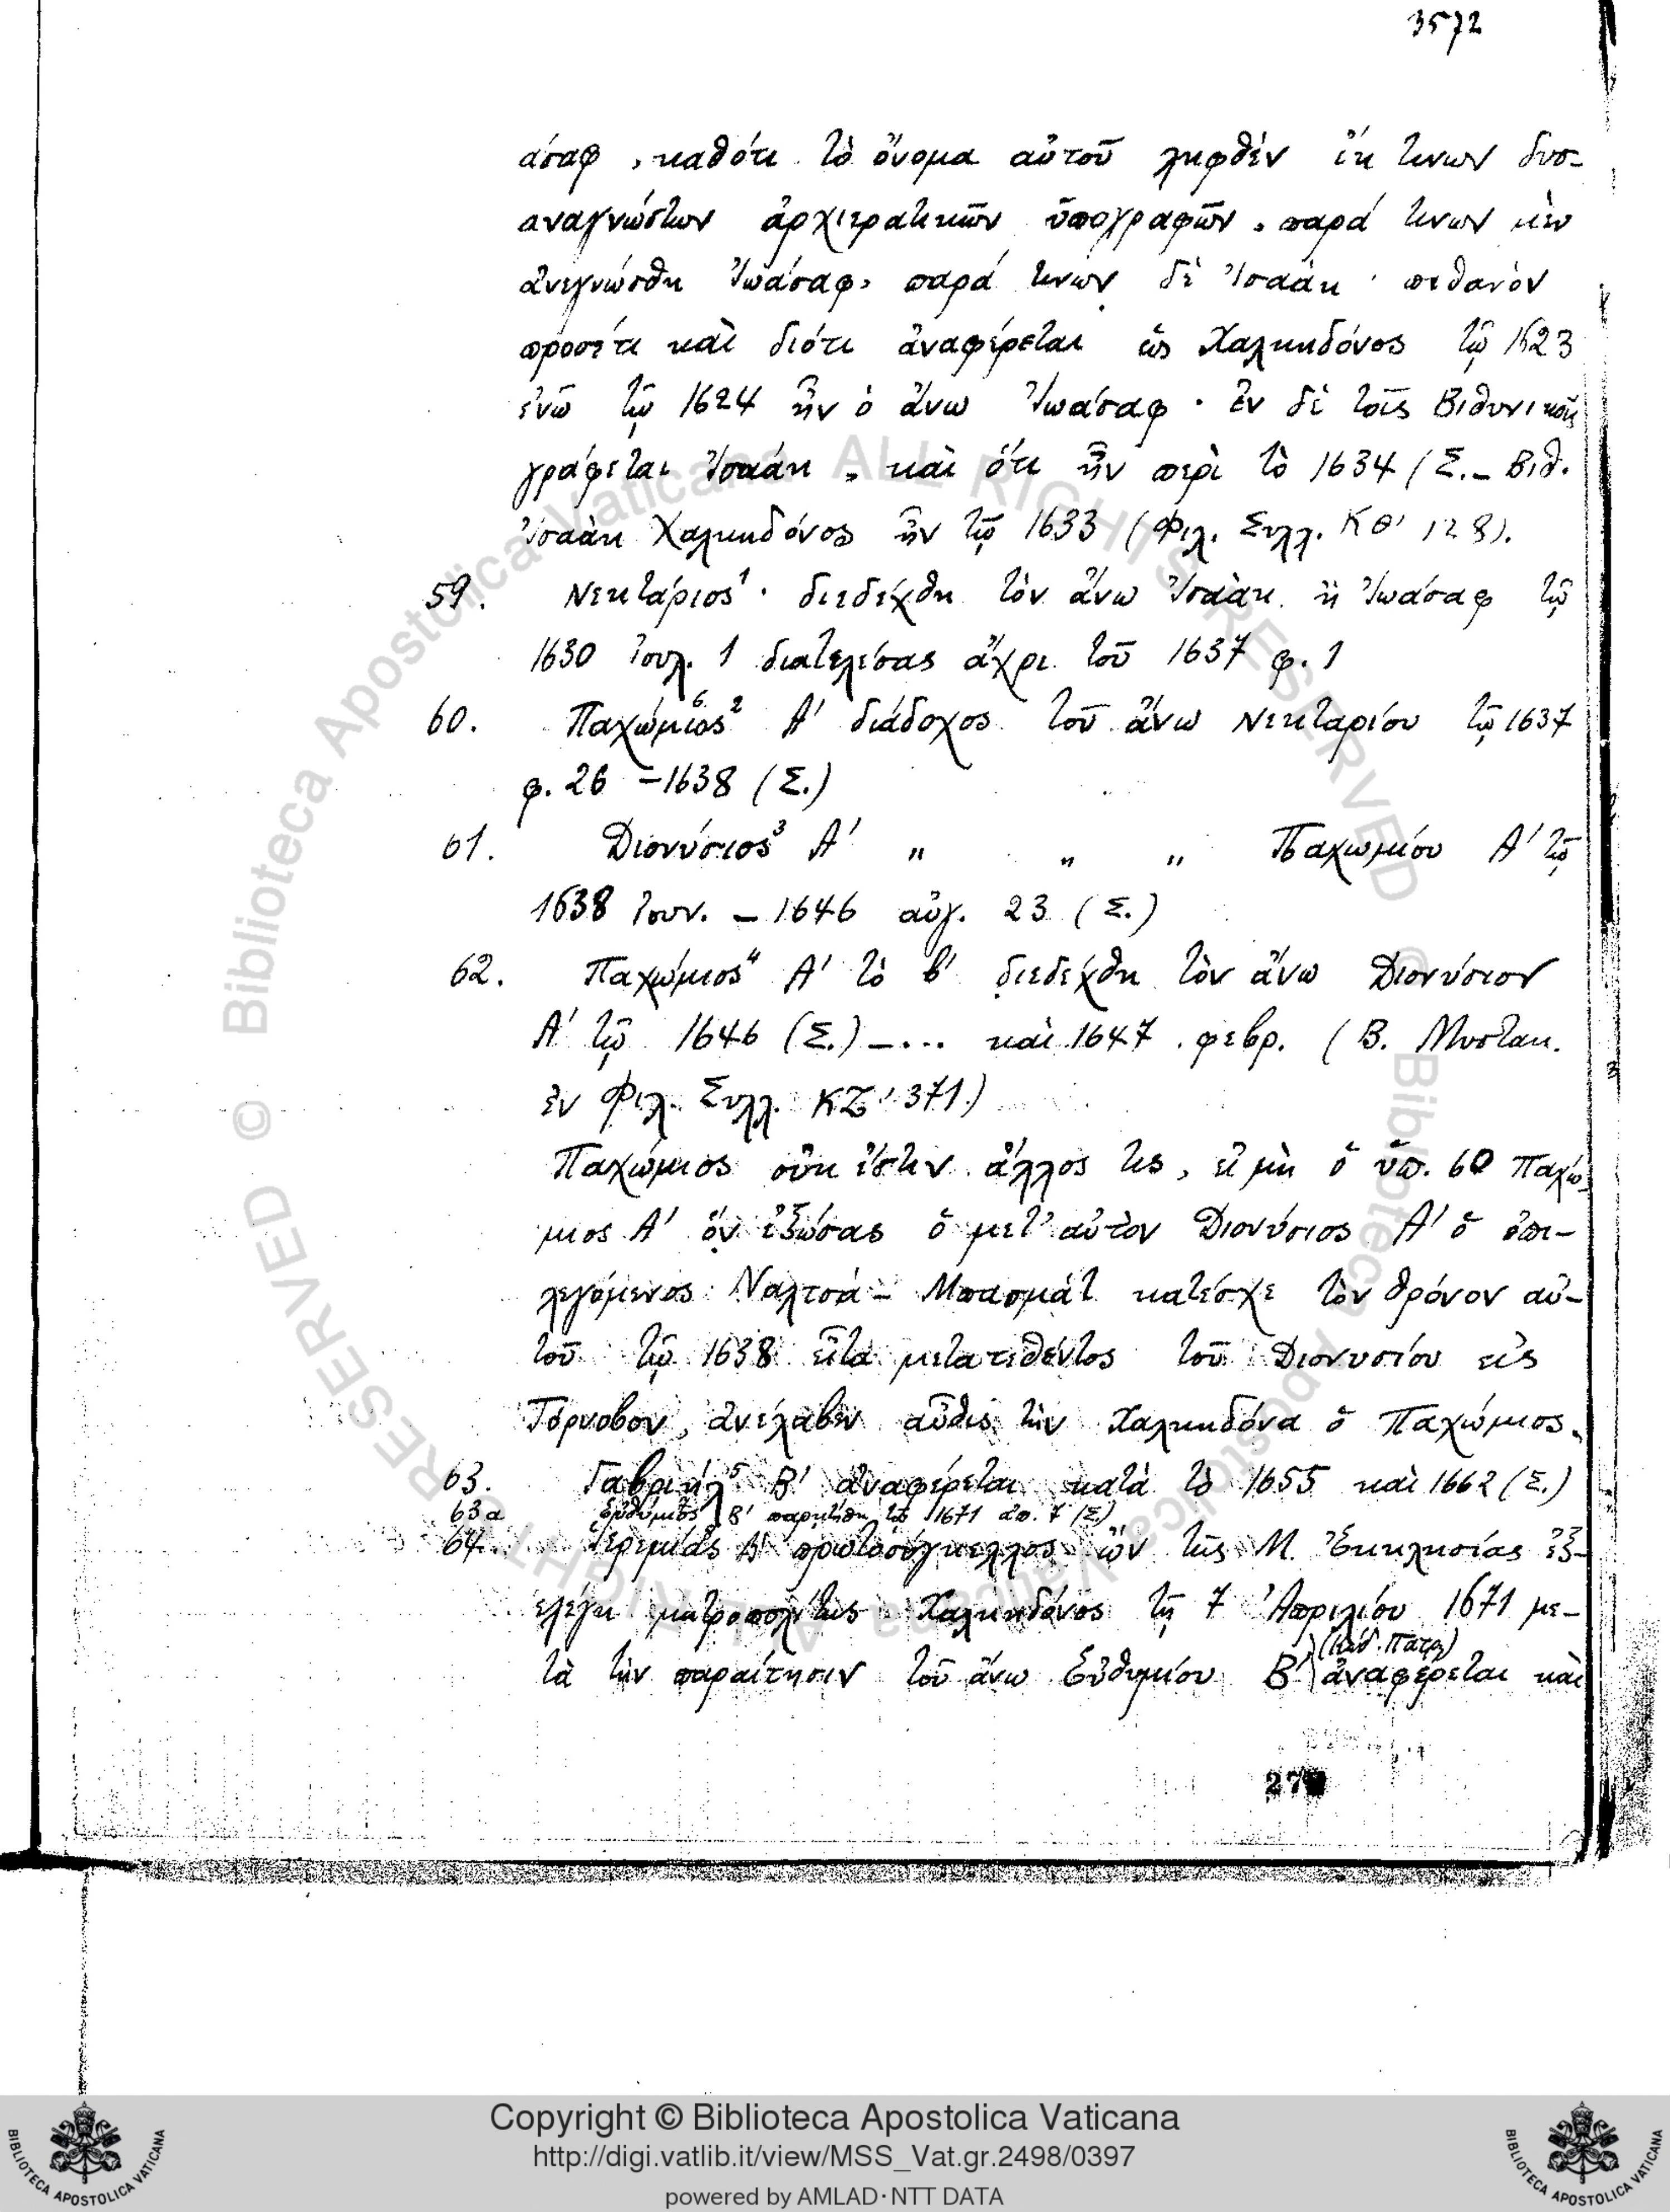 3572
άσαφ, καθότι τὸ ὄνομα αὐτοῦ ληφθὲν ἐκ τινων δυσ-
αναγνώστων ἀρχιερατικῶν ὑπογραφῶν, παρά τινων μὲν
ἀνεγνώσθη Ἰωάσαφ, παρά τινων δὲ Ἰσαὰκ· πιθανὸν
προσέτι καὶ διότι ἀναφέρεται ὡς Χαλκηδόνος τῷ 1623
ἐνῶ τῷ 1624 ἦν ὁ ἄνω Ἰωάσαφ· Ἐν δὲ τοῖς Βιθυνικοῖς
γράφεται Ἰσαάκ, καὶ ὅτι ἦν περὶ τὸ 1634 (Σ.- Βιθ.
Ἰσαὰκ Χαλκηδόνος ἦν τῷ 1633 (Φιλ. Συλλ. ΚΘ' 128).
59. Νεκτάριος¹· διεδέχθη τὸν ἄνω Ἰσαὰκ ἢ Ἰωάσαφ τῷ
1630 Ἰουλ. 1 διατελέσας ἄχρι τοῦ 1637 φ. 1
60. Παχώμιος² Α' διάδοχος τοῦ ἄνω Νεκταρίου τῷ 1637
φ. 26 -1638 (Σ.)
61. Διονύσιος³ Α' " " " Παχωμίου Α' τῷ
1638 Ἰουν. - 1646 αὐγ. 23 (Σ.)
62. Παχώμιος⁴ Α' τὸ β' διεδέχθη τὸν ἄνω Διονύσιον
Α' τῷ 1646 (Σ.) -... καὶ 1647 φεβρ. (Β. Μυστακ.
ἐν Φιλ. Συλλ. ΚΖ' 371)
Παχώμιος οὐκ ἔστιν ἄλλος τις, εἰ μὴ ὁ ὑπ. 60 Παχώ-
μιος Α' ὃν ἐξώσας ὁ μετ' αὐτὸν Διονύσιος Α' ὁ ἐπι-
λεγόμενος Ναλτσὰ - Μπασμὰτ κατέσχε τὸν θρόνον αὐ-
τοῦ τῷ 1638 εἶτα μετατεθέντος τοῦ Διονυσίου εἰς
Τόρνοβον, ἀνέλαβεν αὖθις τὴν Χαλκηδόνα ὁ Παχώμιος.
63. Γαβριὴλ⁵ Β' ἀναφέρεται κατὰ τὸ 1655 καὶ 1662 (Σ.)
63α Εὐθύμιος Β' παρῃτήθη τῷ 1671 ἀπ. 7 (Σ)
64. Ἱερεμίας Α' πρωτοσύγκελλος ὢν τῆς Μ. Ἐκκλησίας ἐξ-
ελέγη μητροπολίτης Χαλκηδόνος τῇ 7 Ἀπριλίου 1671 με-
τὰ τὴν παραίτησιν τοῦ ἄνω Εὐθυμίου Β' (κώδ. Πατρ) ἀναφέρεται καὶ
27
Copyright © Biblioteca Apostolica Vaticana
http://digi.vatlib.it/view/MSS_Vat.gr.2498/0397
powered by AMLAD·NTT DATA
BIBLIOTECA APOSTOLICA VATICANA
BIBLIOTECA APOSTOLICA VATICANA
© Biblioteca Apostolica Vaticana ALL RIGHTS RESERVED